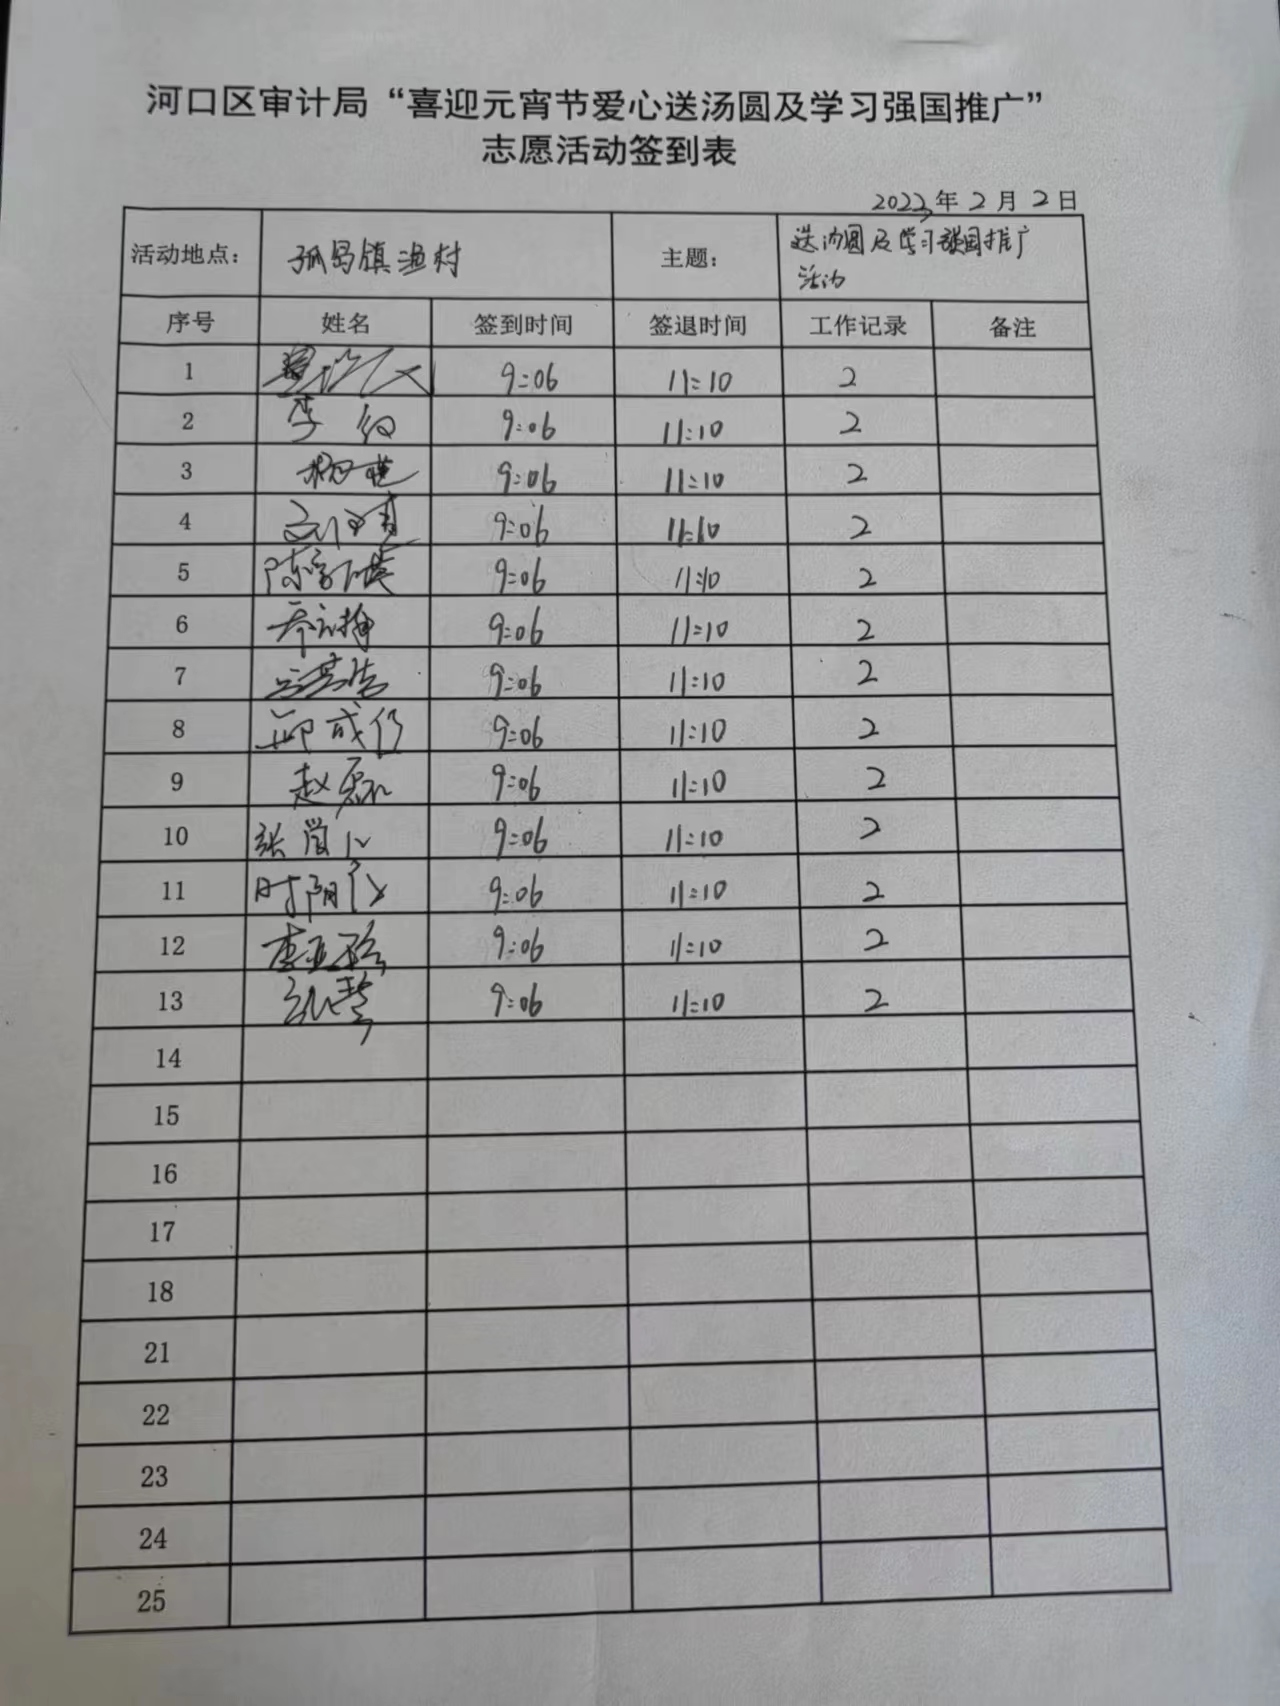 河口区审计局“喜迎元宵节爱心送汤圆及学习强国推广”
志愿活动签到表
2023年2月2日
活动地点： 孤岛镇渔村 主题： 送汤圆及学习强国推广
活动
序号 姓名 签到时间 签退时间 工作记录 备注
1 9:06 11:10 2
2 李 9:06 11:10 2
3 9:06 11:10 2
4 9:06 11:10 2
5 陈 9:06 11:10 2
6 9:06 11:10 2
7 9:06 11:10 2
8 邱成仁 9:06 11:10 2
9 赵磊 9:06 11:10 2
10 张 9:06 11:10 2
11 时阳 9:06 11:10 2
12 李亚 9:06 11:10 2
13 9:06 11:10 2
14
15
16
17
18
21
22
23
24
25